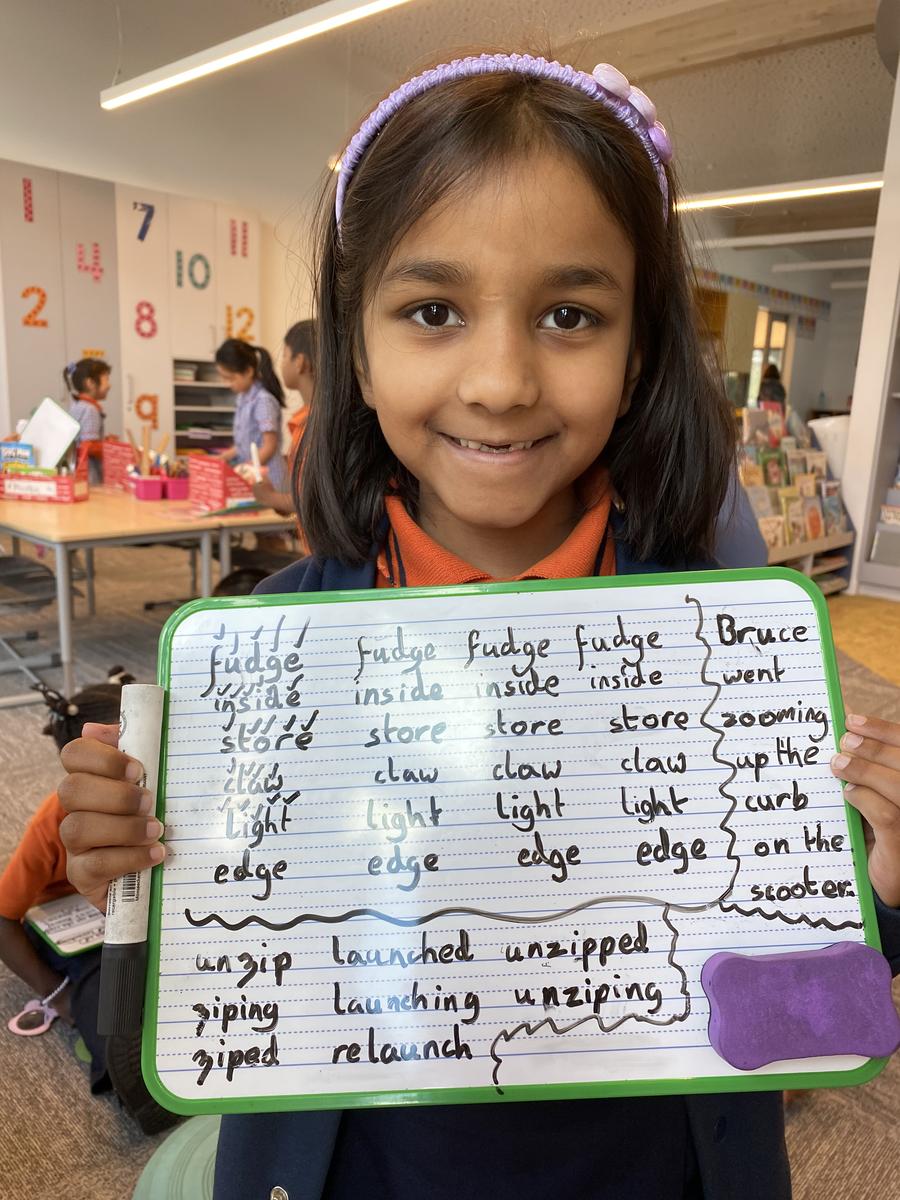 1
7
11
4
10
2
8
12
9
fudge fudge fudge fudge
inside inside inside inside
store store store store
claw claw claw claw
light light light light
edge edge edge edge
Bruce
went
zooming
up the
curb
on the
scooter.
unzip launched unzipped
ziping launching unziping
ziped relaunch